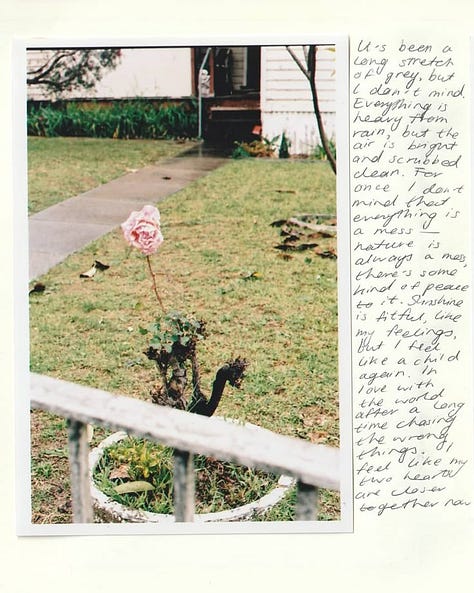 It's been a
long stretch
of grey, but
I don't mind.
Everything is
heavy from
rain, but the
air is bright
and scrubbed
clean. For
once I don't
mind that
everything is
a mess —
nature is
always a mess,
there's some
kind of peace
to it. Sunshine
is fitful, like
my feelings,
but I feel
like a child
again. In
love with
the world
after a long
time chasing
the wrong
things. I
feel like my
two hearts
are closer
together now